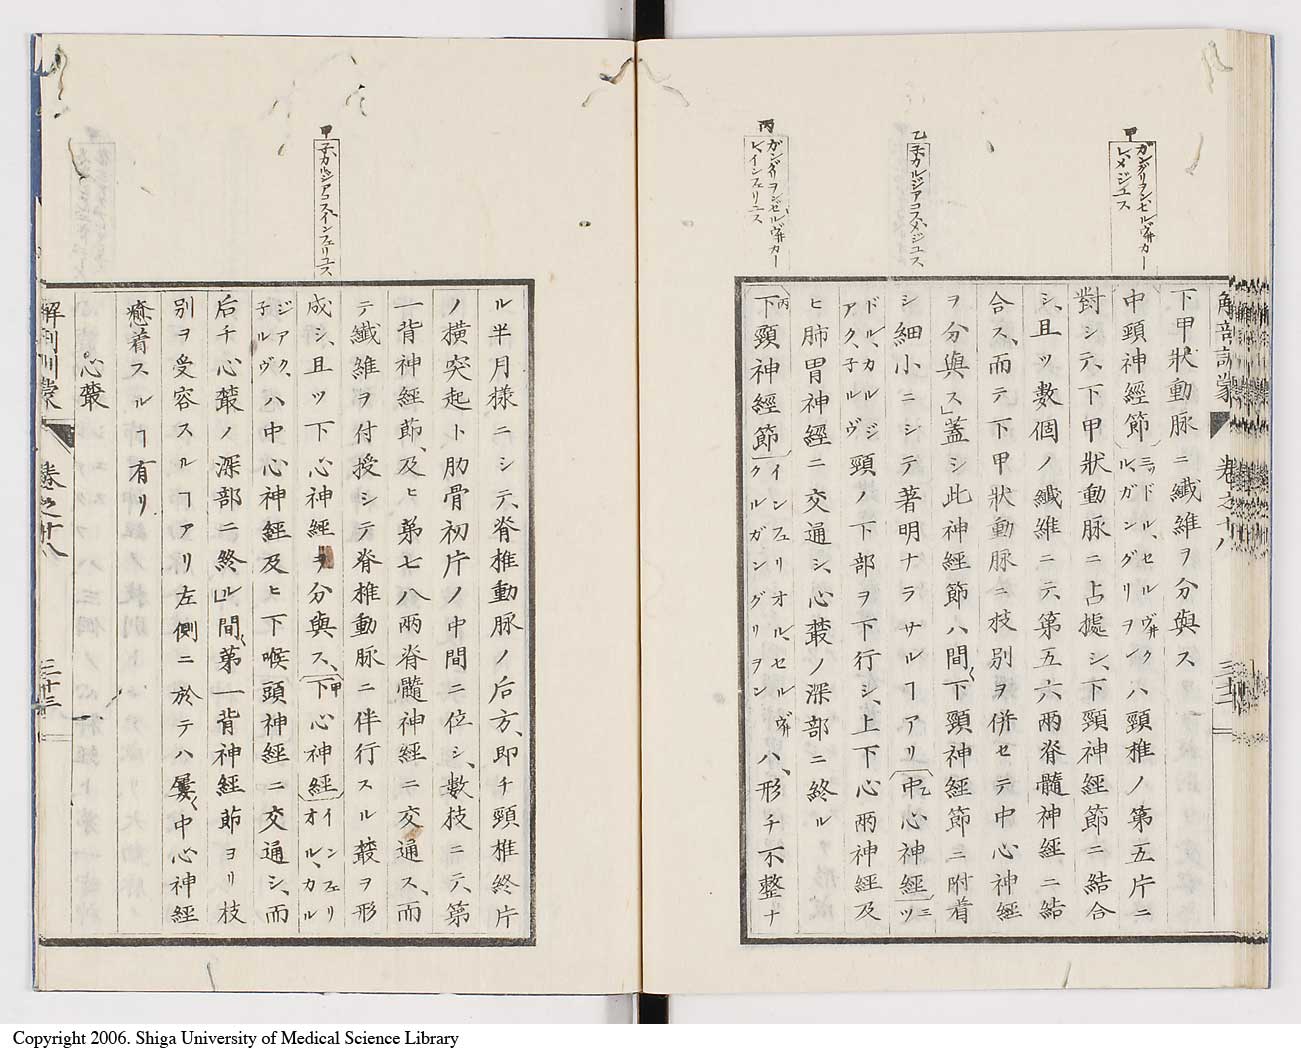 甲
ガングリヲンセルヴ井カー
レメジユス
乙
子カルジアコスメジユス
丙
ガングリヲンセルヴ井カー
レインフェリユス
解剖訓蒙 卷之十八
下甲狀動脈ニ纖維ヲ分與ス
中頸神經節ミッドル、セルヴ井クルガングリヲンハ頸椎ノ第五片ニ
對シテ、下甲狀動脈ニ占據シ、下頸神經節ニ結合
シ、且ツ數個ノ纖維ニテ第五六兩脊髓神經ニ結
合ス、而テ下甲狀動脈ニ枝別ヲ併セテ中心神經
ヲ分與ス」蓋シ此神經節ハ間〻下頸神經節ニ附着
シ細小ニシテ著明ナラサルヿアリ乙中心神經ミッ
ドル、カルジアク、子ルヴ頸ノ下部ヲ下行シ、上下心兩神經及
ヒ肺胃神經ニ交通シ、心叢ノ深部ニ終ル
丙下頸神經節インフェリオル、セルヴ井クルガングリヲンハ、形チ不整ナ
甲
子カルジアコスインフェリユス
ル半月樣ニシテ、脊椎動脈ノ后方、即チ頸椎終片
ノ橫突起ト肋骨初片ノ中間ニ位シ、數枝ニテ、第
一背神經節、及ヒ第七八兩脊髓神經ニ交通ス、而
テ纖維ヲ付授シテ脊椎動脈ニ伴行スル叢ヲ形
成シ、且ツ下心神經ヲ分與ス、甲下心神經インフェリオル、カル
ジアク、子ルヴハ中心神經及ヒ下喉頭神經ニ交通シ、而
后チ心叢ノ深部ニ終ル」間〻第一背神經節ヨリ枝
別ヲ受容スルヿアリ左側ニ於テハ屢〻中心神經
癒着スルヿ有リ
心叢
解剖訓蒙 卷之十八 三十三